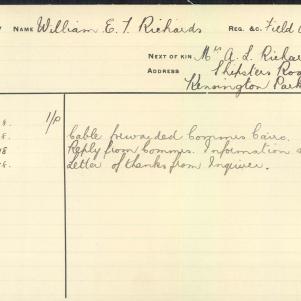 Y NAME William E. T. Richards REG. &C. Field
NEXT OF KIN Mrs A. L. Richar
ADDRESS Shipsters Roa
Kensington Park
8. 1/p Cable forwarded Commrs Cairo.
18 Reply from Commrs. Information
8. Letter of thanks from Inquirer.